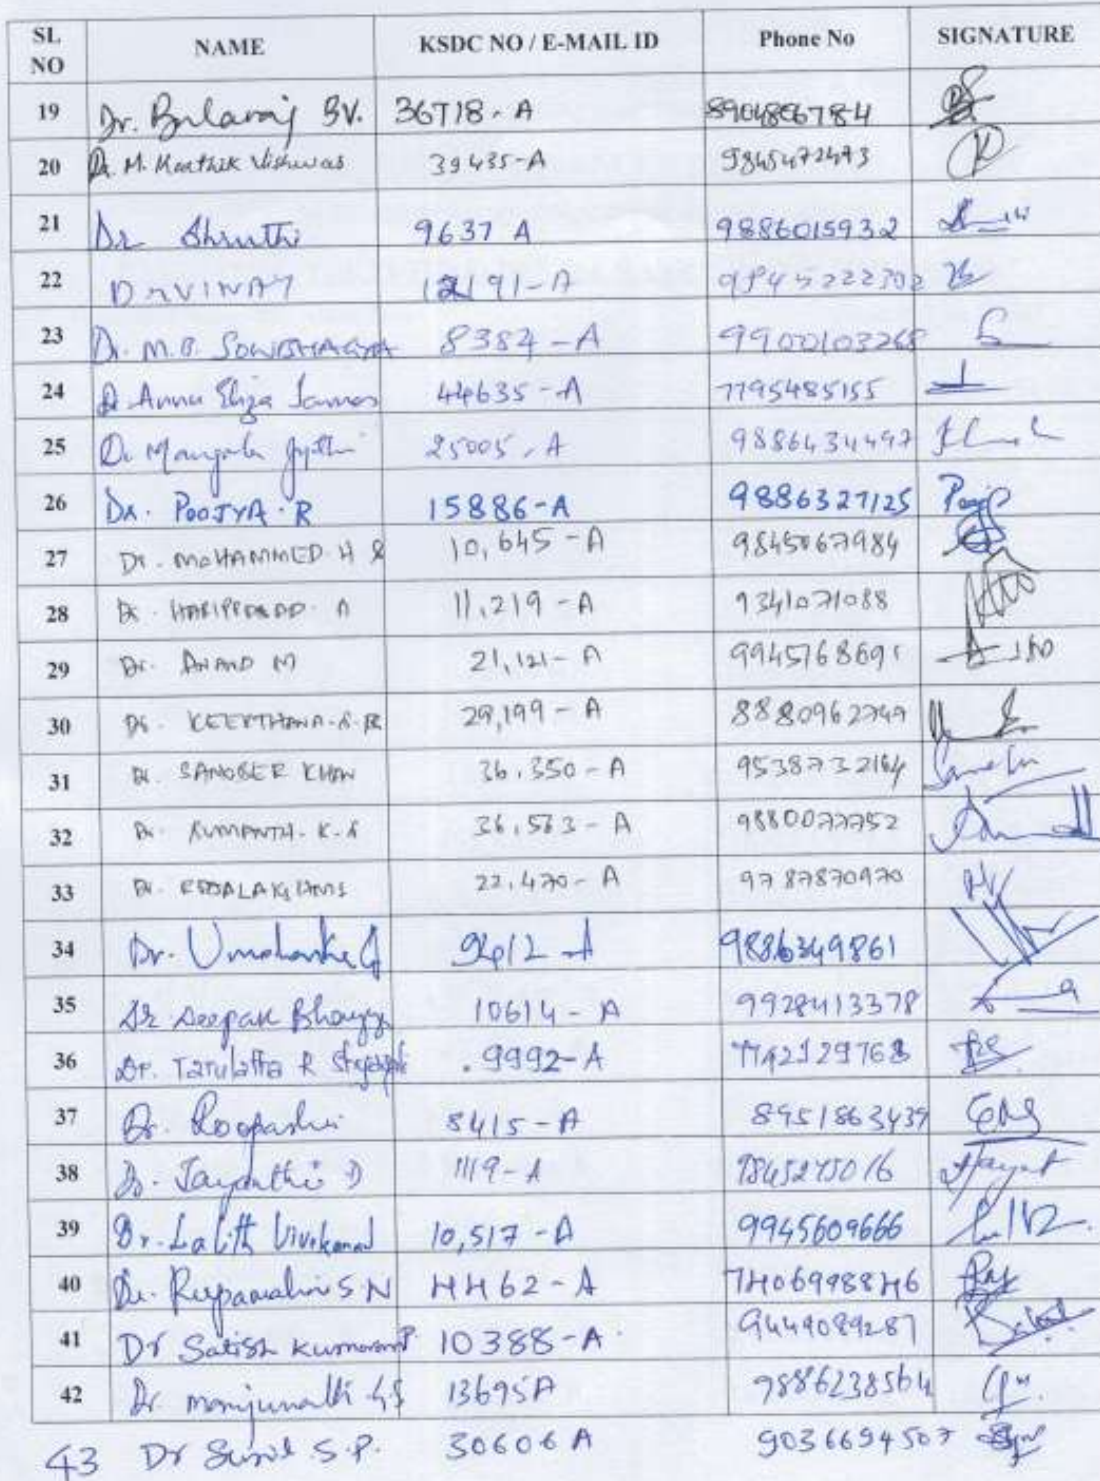 SL NO NAME KSDC NO / E-MAIL ID Phone No SIGNATURE
19 Dr. Balaraj BV. 36718-A 8904886784
20 Dr. M. Karthik Vishwas 39435-A 9845472493
21 Dr Shruthi 9637 A 9886015932
22 Dr VINAY 12191-A
23 Dr. M.B. SOWBHAGYA 8384-A 9900103268
24 Dr Annu Eliza James 44635-A 7795485155
25 Dr Mangala Jyothi 25005-A 9886434497
26 Dr. POOJYA.R 15886-A 9886327125
27 Dr. MOHAMMED H S 10,645-A 9845067984
28 Dr. HARIPRASAD. A 11,219-A 9341071088
29 Dr. ANAND M 21,121-A 9945768691
30 Dr. KEERTHANA.S.R 29,199-A 8880962749
31 Dr. SANOBER KHAN 36,350-A 9538732164
32 Dr. SUMANTH.K.S 36,563-A 9880077752
33 Dr. 22,470-A 9787870970
34 Dr. 9612-A 9886349861
35 Dr Deepak 10614-A 9928413378
36 Dr. Tarulatha R .9992-A 7742129768
37 Dr. Roopashri 8415-A 8951863439
38 Dr. Jayanthi D 1119-A 9845275016
39 Dr. Lalith Vivekanand 10,517-A 9945609666
40 Dr. Rupamalini S N 4462-A 7406998846
41 Dr Satish Kumaran P. 10388-A. 9449089287
42 Dr manjunath G S 13695A 9886238564
43 Dr Sunil S.P. 30606 A 9036694507